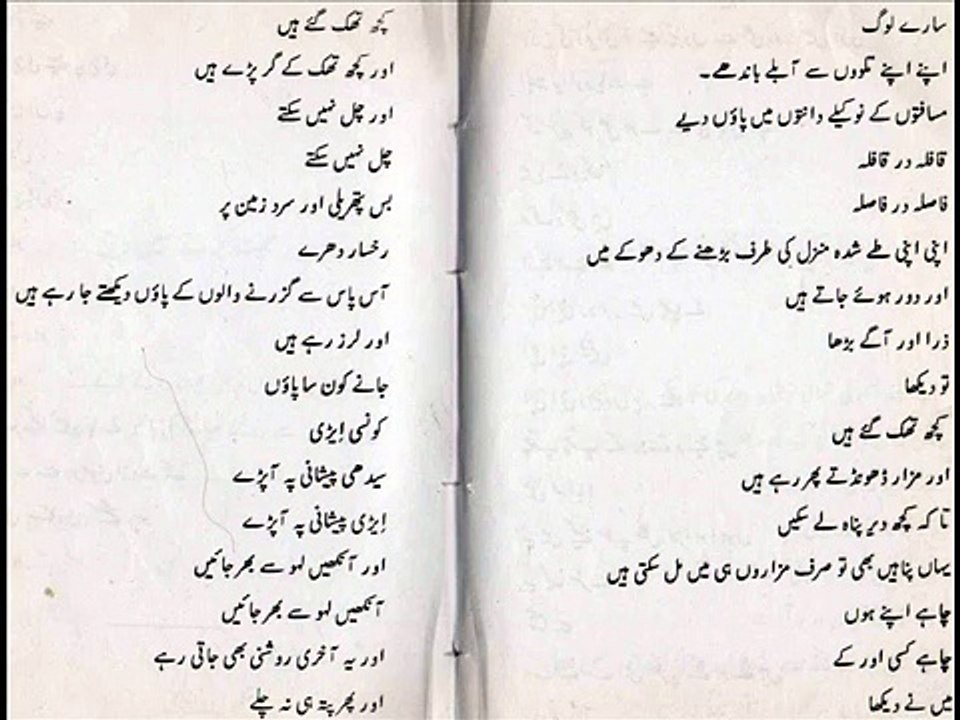 سارے لوگ
اپنے اپنے تلووں سے آبلے باندھے۔
مسافتوں کے نوکیلے دانتوں میں پاؤں دیے
قافلہ در قافلہ
فاصلہ در فاصلہ
اپنی اپنی طے شدہ منزل کی طرف بڑھنے کے دھوکے میں
اور دور ہوئے جاتے ہیں
ذرا اور آگے بڑھا
تو دیکھا
کچھ تھک گئے ہیں
اور مزار ڈھونڈتے پھر رہے ہیں
تا کہ کچھ دیر پناہ لے سکیں
یہاں پناہیں بھی تو صرف مزاروں ہی میں مل سکتی ہیں
چاہے اپنے ہوں
چاہے کسی اور کے
میں نے دیکھا
کچھ تھک گئے ہیں
اور کچھ تھک کے گر پڑے ہیں
اور چل نہیں سکتے
چل نہیں سکتے
بس پتھریلی اور سرد زمین پر
رخسار دھرے
آس پاس سے گزرنے والوں کے پاؤں دیکھتے جا رہے ہیں
اور لرز رہے ہیں
جانے کون سا پاؤں
کونسی ایڑی
سیدھی پیشانی پہ آپڑے
ایڑی پیشانی پہ آپڑے
اور آنکھیں لہو سے بھر جائیں
آنکھیں لہو سے بھر جائیں
اور یہ آخری روشنی بھی جاتی رہے
اور پھر پتہ ہی نہ چلے